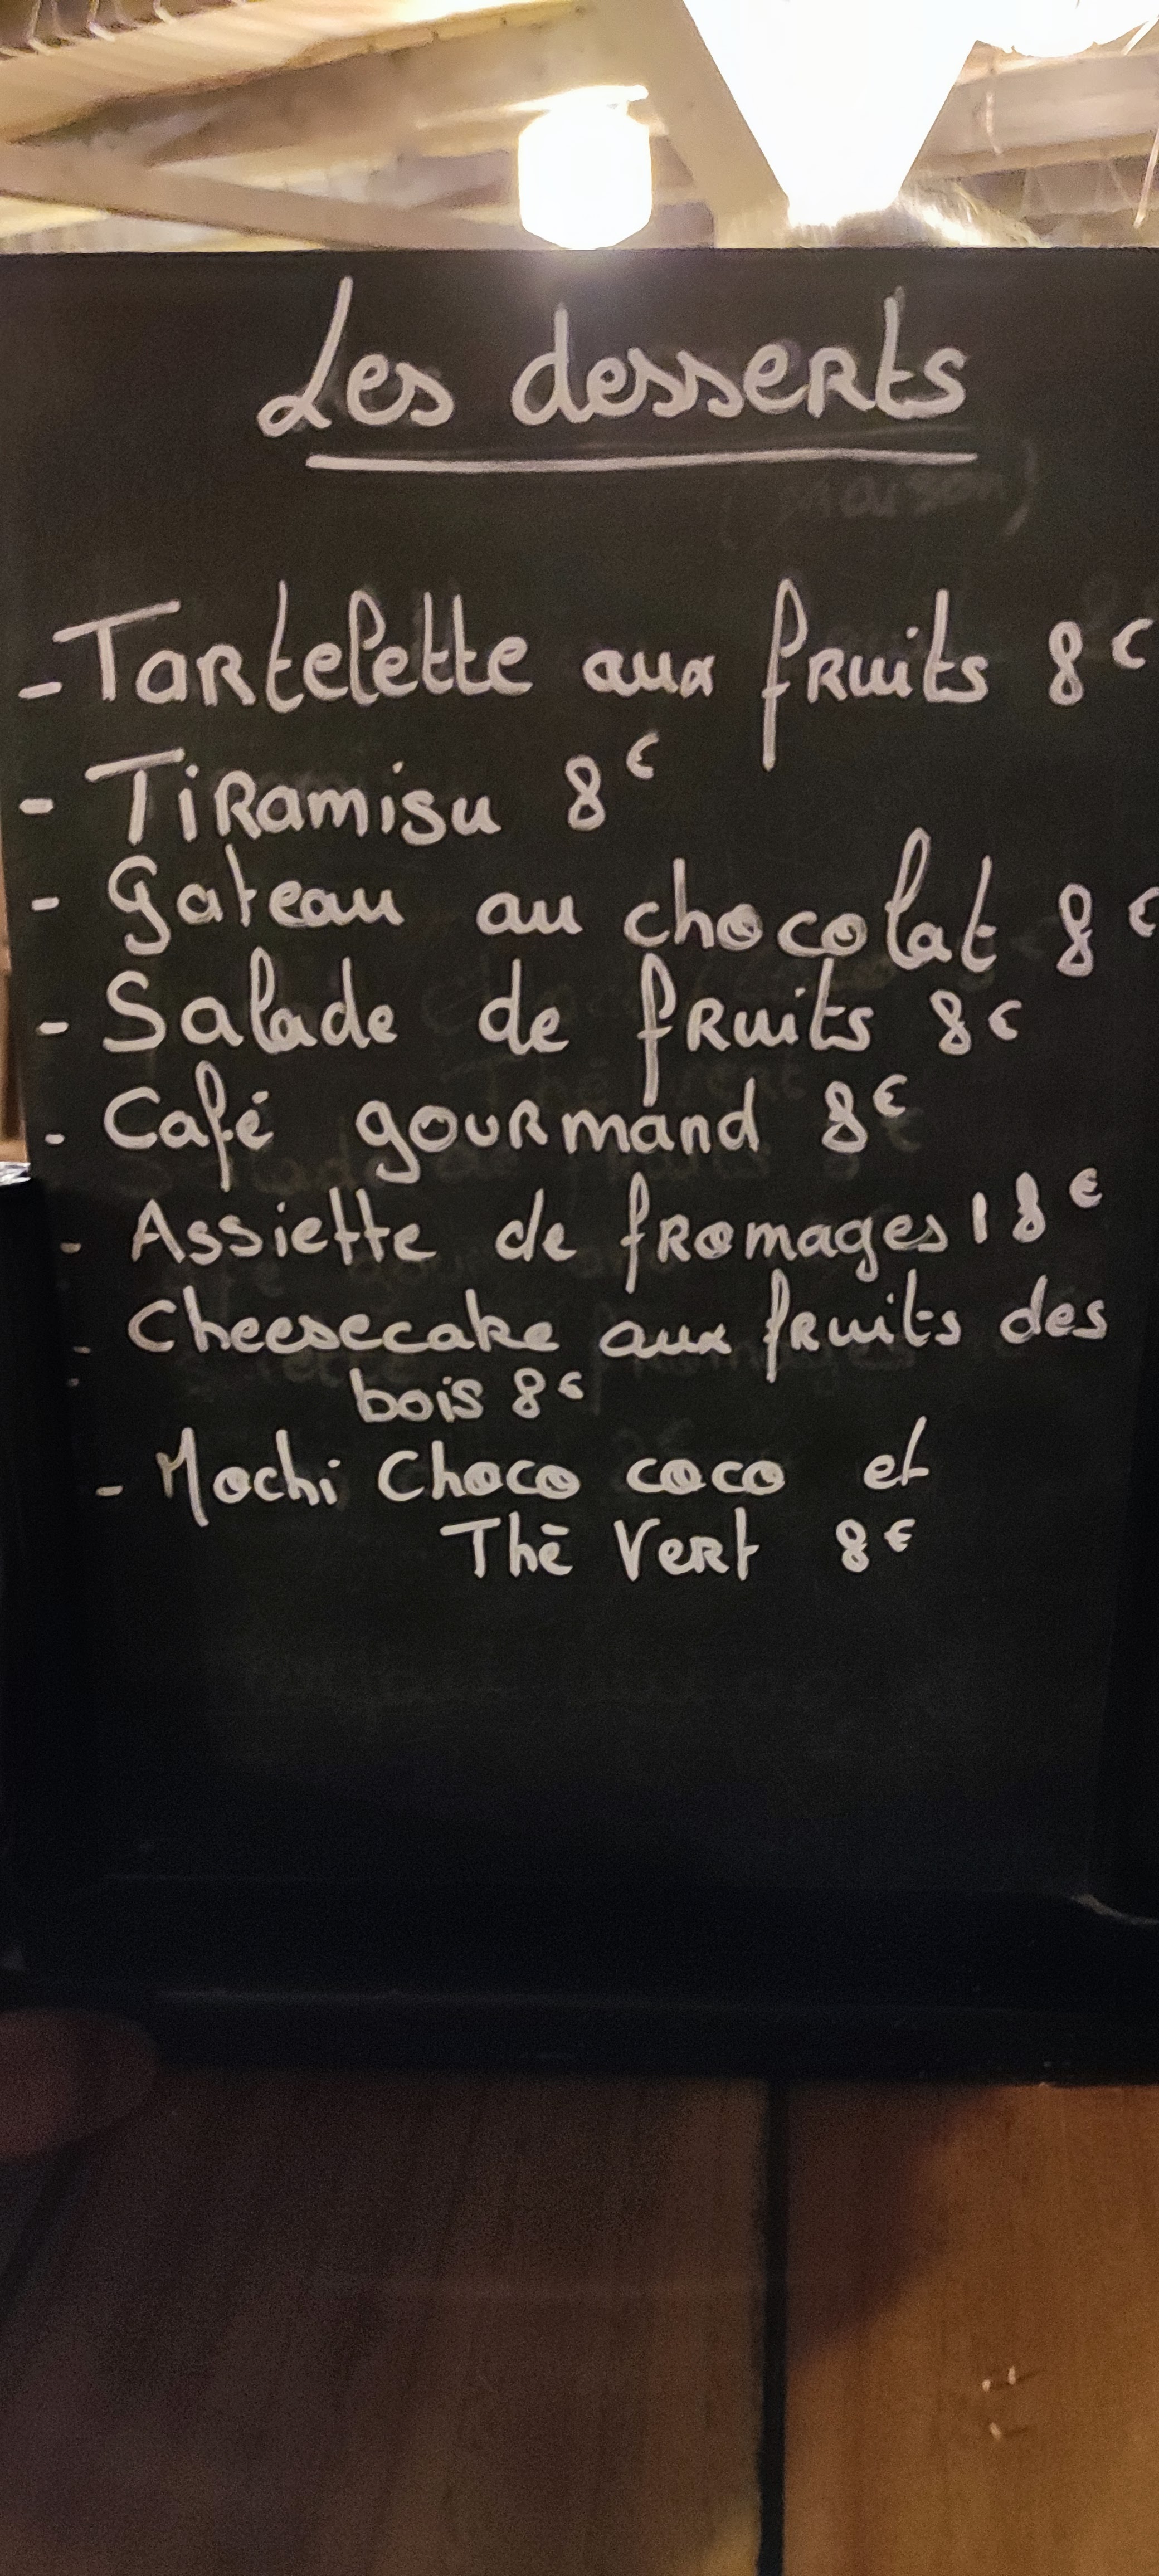 Les desserts
(maison)
- Tartelette aux fruits 8€
- Tiramisu 8€
- Gateau au chocolat 8€
- Salade de fruits 8€
- Café gourmand 8€
- Assiette de fromages 18€
- Cheesecake aux fruits des
bois 8€
- Mochi Choco coco et
Thé Vert 8€